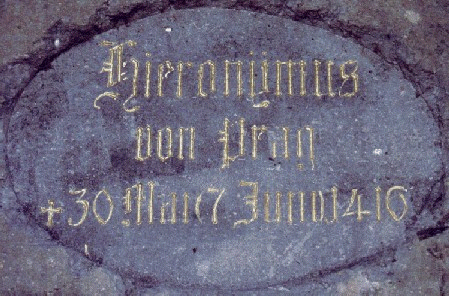 Hieronÿmus
von Prag
+30 Mai(7 Juni)1416